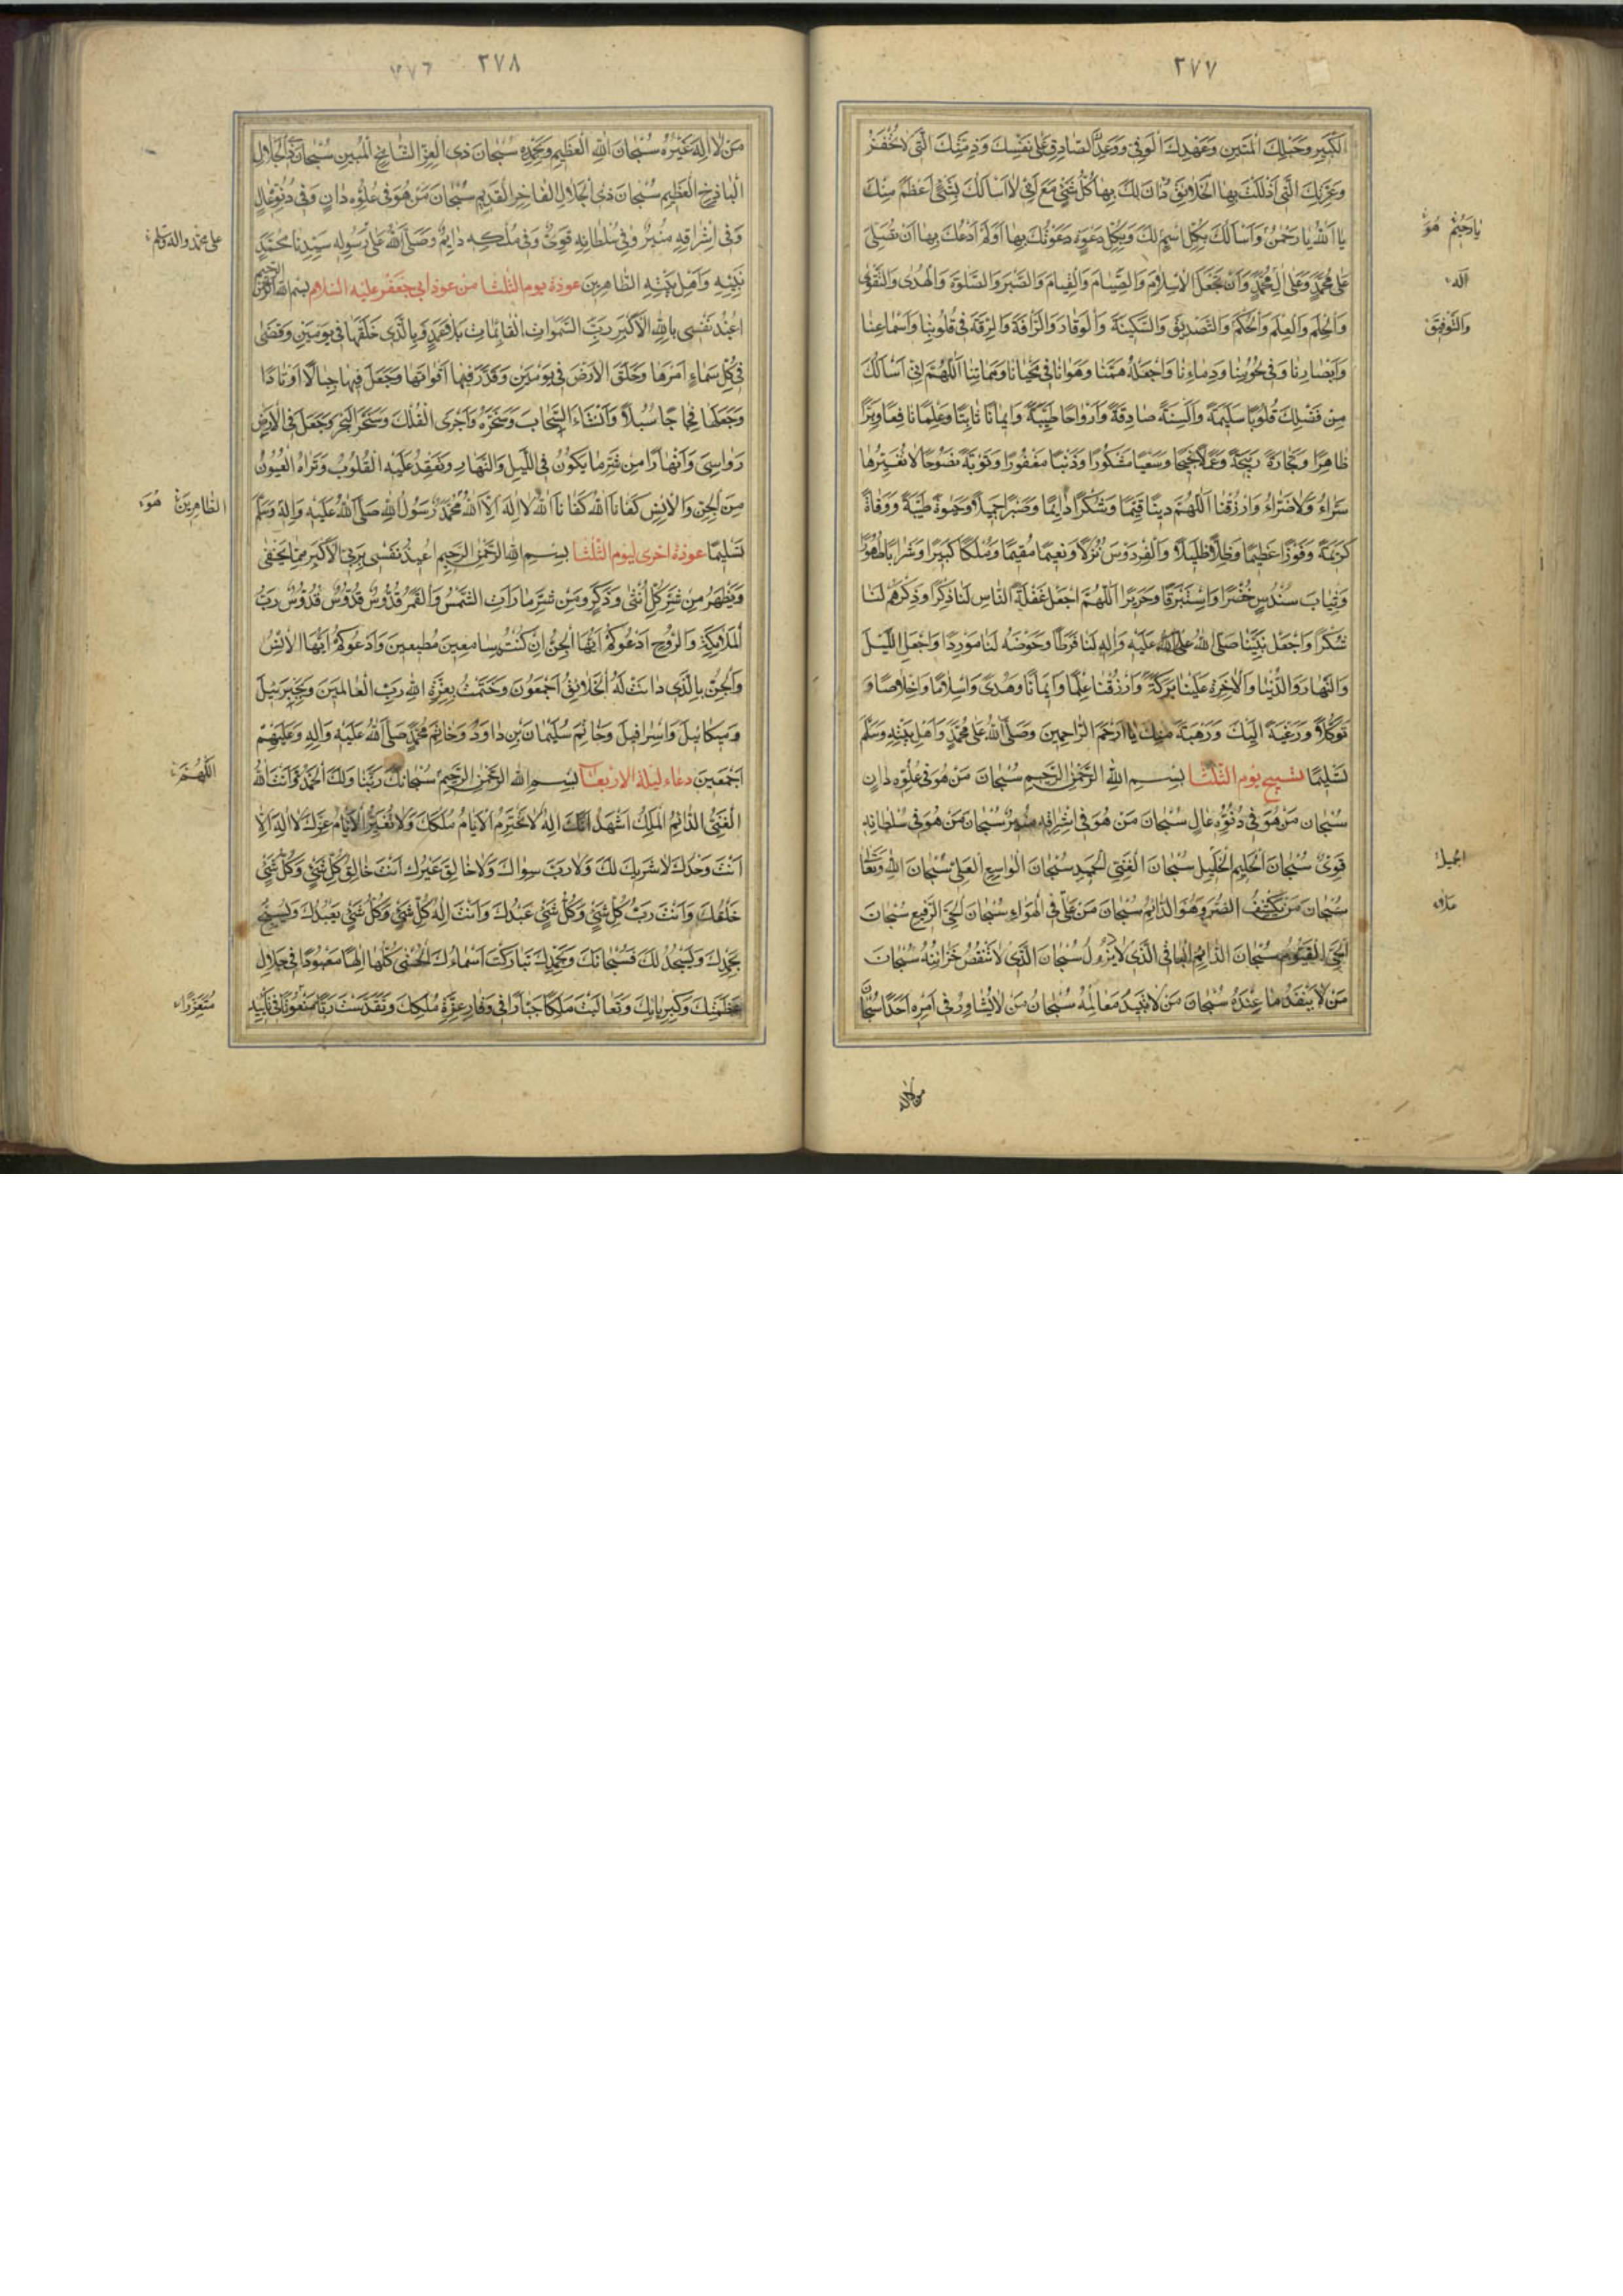 ٢٧٧
الكَبِيرِ وَحَبْلِكَ المَتِينِ وَعَهْدِكَ الوَفِيِّ وَوَعْدِكَ الصَّادِقِ عَلىٰ نَفْسِكَ وَذِمَّتِكَ الَّتِي لاٰ تُخْفَرُ
وَعِزَّتِكَ الَّتِي اَذْلَلْتَ بِهَا الخَلاٰيِقَ وَدَانَ لَكَ بِهَا كُلُّ شَيْءٍ مَعَ اَنِّي لاٰ اَسْاَلُكَ بِشَيْءٍ اَعْظَمَ مِنْكَ
يٰا اَللهُ يٰا رَحْمٰنُ وَاَسْاَلُكَ بِكُلِّ اسْمٍ لَكَ وَبِكُلِّ دَعْوَةٍ دَعَوْتُكَ بِهٰا اَوْ لَمْ اَدْعُكَ بِهٰا اَنْ تُصَلِّيَ
يٰا رَحِيمُ هُوَ
عَلىٰ مُحَمَّدٍ وَعَلىٰ آلِ مُحَمَّدٍ وَاَنْ تَجْعَلَ الاِسْلاٰمَ وَالصِّيٰامَ وَالقِيٰامَ وَالصَّبْرَ وَالصَّلوٰةَ وَالهُدىٰ وَالتَّقْوىٰ
آلِه
وَالحِلْمَ وَالعِلْمَ وَالحُكْمَ وَالتَّصْدِيقَ وَالسَّكِينَةَ وَالوَقٰارَ وَالرَّافَةَ وَالرِّقَّةَ فِي قُلُوبِنٰا وَاَسْمٰاعِنٰا
وَالتَّوْفِيقَ
وَاَبْصٰارِنٰا وَفِي نُحُورِنٰا وَدِمٰاءِنٰا وَاجْعَلْهُ هَمَّنٰا وَهَوٰانٰا فِي مَحْيٰانٰا وَمَمٰاتِنٰا اَللّٰهُمَّ اِنِّي اَسْاَلُكَ
مِنْ فَضْلِكَ قُلُوبًا سَلِيمَةً وَاَلْسِنَةً صٰادِقَةً وَاَرْوٰاحًا طَيِّبَةً وَايمٰانًا ثٰابِتًا وَعِلْمًا نٰافِعًا وَبِرًّا
ظٰاهِرًا وَتِجٰارَةً رَبِيحَةً وَعَمَلاً نَجِيحًا وَسَعْيًا مَشْكُورًا وَذَنْبًا مَغْفُورًا وَتَوْبَةً نَصُوحًا لاٰ تُغَيِّرُهٰا
سَرّٰاءُ وَلاٰ ضَرّٰاءُ وَارْزُقْنَا اَللّٰهُمَّ دِينًا قَيِّمًا وَشُكْرًا دٰايِمًا وَصَبْرًا جَمِيلاً وَحَيوٰةً طَيِّبَةً وَوَفٰاةً
كَرِيمَةً وَفَوْزًا عَظِيمًا وَظِلاًّ ظَلِيلاً وَالفِرْدَوْسَ نُزُلاً وَنَعِيمًا مُقِيمًا وَمُلْكًا كَبِيرًا وَشَرٰابًا طَهُورًا
وَثِيٰابَ سُنْدُسٍ خُضْرًا وَاِسْتَبْرَقًا وَحَرِيرًا اَللّٰهُمَّ اجْعَلْ غَفْلَةَ النّٰاسِ لَنٰا ذِكْرًا وَذِكْرَهُمْ لَنٰا
شُكْرًا وَاجْعَلْ نَبِيَّنٰا صَلَّى اللهُ عَلَيْهِ وَآلِهِ لَنٰا فَرَطًا وَحَوْضَهُ لَنٰا مَوْرِدًا وَاجْعَلِ اللَّيْلَ
وَالنَّهٰارَ وَالدُّنْيٰا وَالآخِرَةَ عَلَيْنٰا بَرَكَةً وَارْزُقْنٰا عِلْمًا وَايمٰانًا وَهُدىً وَاِسْلاٰمًا وَاِخْلاٰصًا وَ
تَوَكُّلاً وَرَغْبَةً اِلَيْكَ وَرَهْبَةً مِنْكَ يٰا اَرْحَمَ الرّٰاحِمِينَ وَصَلَّى اللهُ عَلىٰ مُحَمَّدٍ وَاَهْلِ بَيْتِهِ وَسَلَّمَ
تَسْلِيمًا تسبيح يوم الثّلثا بِسْمِ اللهِ الرَّحْمٰنِ الرَّحِيمِ سُبْحٰانَ مَنْ هُوَ فِي عُلُوِّهِ دٰانٍ
سُبْحٰانَ مَنْ هُوَ فِي دُنُوِّهِ عٰالٍ سُبْحٰانَ مَنْ هُوَ فِي اِشْرٰاقِهِ مُنِيرٌ سُبْحٰانَ مَنْ هُوَ فِي سُلْطٰانِهِ
قَوِيٌّ سُبْحٰانَ الحَلِيمِ الجَلِيلِ سُبْحٰانَ الغَنِيِّ الحَمِيدِ سُبْحٰانَ الوٰاسِعِ العَلِيِّ سُبْحٰانَ اللهِ وَتَعٰالىٰ
الجميل
سُبْحٰانَ مَنْ يَكْشِفُ الضُّرَّ وَهُوَ الدّٰائِمُ سُبْحٰانَ مَنْ عَلاٰ فِي الهَوٰاءِ سُبْحٰانَ الحَيِّ الرَّفِيعِ سُبْحٰانَ
الحَيِّ القَيُّومِ سُبْحٰانَ الدّٰائِمِ البٰاقِي الَّذِي لاٰ يَزُولُ سُبْحٰانَ الَّذِي لاٰ تَنْقُصُ خَزٰائِنُهُ سُبْحٰانَ
مَنْ لاٰ يَنْفَدُ مٰا عِنْدَهُ سُبْحٰانَ مَنْ لاٰ تَبِيدُ مَعٰالِمُهُ سُبْحٰانَ مَنْ لاٰ يُشٰاوِرُ فِي اَمْرِهِ اَحَدًا سُبْحٰانَ
من لا اله
٢٧٨
مَنْ لاٰ اِلٰهَ غَيْرُهُ سُبْحٰانَ اللهِ العَظِيمِ وَبِحَمْدِهِ سُبْحٰانَ ذِي العِزِّ الشّٰامِخِ المُبِينِ سُبْحٰانَ ذِي الجَلاٰلِ
البٰاذِخِ العَظِيمِ سُبْحٰانَ ذِي الجَلاٰلِ الفٰاخِرِ القَدِيمِ سُبْحٰانَ مَنْ هُوَ فِي عُلُوِّهِ دٰانٍ وَفِي دُنُوِّهِ عٰالٍ
وَفِي اِشْرٰاقِهِ مُنِيرٌ وَفِي سُلْطٰانِهِ قَوِيٌّ وَفِي مُلْكِهِ دٰايِمٌ وَصَلَّى اللهُ عَلىٰ رَسُولِهِ سَيِّدِنٰا مُحَمَّدٍ
على محمد واله وسلم
نَبِيِّهِ وَاَهْلِ بَيْتِهِ الطّٰاهِرِينَ عوذة يوم الثّلثا من عوذ ابي جعفر عليه السّلام بِسْمِ اللهِ الرَّحْمٰنِ الرَّحِيمِ
اُعِيذُ نَفْسِي بِاللهِ الاَكْبَرِ رَبِّ السَّمٰوٰاتِ القٰائِمٰاتِ بِلاٰ عَمَدٍ وَبِالَّذِي خَلَقَهٰا فِي يَوْمَيْنِ وَقَضىٰ
فِي كُلِّ سَمٰاءٍ اَمْرَهٰا وَخَلَقَ الاَرْضَ فِي يَوْمَيْنِ وَقَدَّرَ فِيهٰا اَقْوٰاتَهٰا وَجَعَلَ فِيهٰا جِبٰالاً اَوْتٰادًا
وَجَعَلَهٰا فِجٰاجًا سُبُلاً وَاَنْشَاَ السَّحٰابَ وَسَخَّرَهُ وَاَجْرَى الفُلْكَ وَسَخَّرَ البَحْرَ وَجَعَلَ فِي الاَرْضِ
رَوٰاسِيَ وَاَنْهٰارًا مِنْ شَرِّ مٰا يَكُونُ فِي اللَّيْلِ وَالنَّهٰارِ وَتَعْقِدُ عَلَيْهِ القُلُوبُ وَتَرٰاهُ العُيُونُ
مِنَ الجِنِّ وَالاِنْسِ كَفٰانَا اللهُ كَفٰانَا اللهُ لاٰ اِلٰهَ اِلاَّ اللهُ مُحَمَّدٌ رَسُولُ اللهِ صَلَّى اللهُ عَلَيْهِ وَآلِهِ وَسَلَّمَ
الطّٰاهِرِينَ هُوَ
تَسْلِيمًا عوذة اخرى ليوم الثّلثا بِسْمِ اللهِ الرَّحْمٰنِ الرَّحِيمِ اُعِيذُ نَفْسِي بِرَبِّيَ الاَكْبَرِ مِمّٰا يَخْفىٰ
وَيَظْهَرُ مِنْ شَرِّ كُلِّ اُنْثىٰ وَذَكَرٍ وَمِنْ شَرِّ مٰا رَاَتِ الشَّمْسُ وَالقَمَرُ قُدُّوسٌ قُدُّوسٌ قُدُّوسٌ رَبُّ
المَلاٰئِكَةِ وَالرُّوحِ اَدْعُوكُمْ اَيُّهَا الجِنُّ اِنْ كُنْتُمْ سٰامِعِينَ مُطِيعِينَ وَاَدْعُوكُمْ اَيُّهَا الاِنْسُ
وَالجِنُّ بِالَّذِي دٰانَتْ لَهُ الخَلاٰئِقُ اَجْمَعُونَ وَخَتَمْتُ بِعِزَّةِ اللهِ رَبِّ العٰالَمِينَ وَجَبْرَئِيلَ
وَمِيكٰائِيلَ وَاِسْرٰافِيلَ وَخٰاتَمِ سُلَيْمٰانَ بْنِ دٰاوُدَ وَخٰاتَمِ مُحَمَّدٍ صَلَّى اللهُ عَلَيْهِ وَآلِهِ وَعَلَيْهِمْ
اَجْمَعِينَ دعاء ليلة الاربعا بِسْمِ اللهِ الرَّحْمٰنِ الرَّحِيمِ سُبْحٰانَكَ رَبَّنٰا وَلَكَ الحَمْدُ اَنْتَ اللهُ
اَللّٰهُمَّ
الغَنِيُّ الدّٰائِمُ المَلِكُ اَشْهَدُ اَنَّكَ اِلٰهٌ لاٰ تَخْتَرِمُ الاَيّٰامُ مُلْكَكَ وَلاٰ تُغَيِّرُ الاَيّٰامُ عِزَّكَ لاٰ اِلٰهَ اِلاّٰ
اَنْتَ وَحْدَكَ لاٰ شَرِيكَ لَكَ وَلاٰ رَبَّ سِوٰاكَ وَلاٰ خٰالِقَ غَيْرُكَ اَنْتَ خٰالِقُ كُلِّ شَيْءٍ وَكُلُّ شَيْءٍ
خَلْقُكَ وَاَنْتَ رَبُّ كُلِّ شَيْءٍ وَكُلُّ شَيْءٍ عَبْدُكَ وَاَنْتَ اِلٰهُ كُلِّ شَيْءٍ وَكُلُّ شَيْءٍ يَعْبُدُكَ وَيُسَبِّحُ
بِحَمْدِكَ وَيَسْجُدُ لَكَ فَسُبْحٰانَكَ وَبِحَمْدِكَ تَبٰارَكَتْ اَسْمٰاؤُكَ الحُسْنىٰ كُلُّهٰا اِلٰهًا مَعْبُودًا فِي جَلاٰلِ
عَظَمَتِكَ وَكِبْرِيٰائِكَ وَتَعٰالَيْتَ مَلِكًا جَبّٰارًا فِي وَقٰارِ عِزَّةِ مُلْكِكَ وَتَقَدَّسْتَ رَبًّا مَنْعُوتًا فِي تَاْيِيدِ
مُتَعَزِّزًا